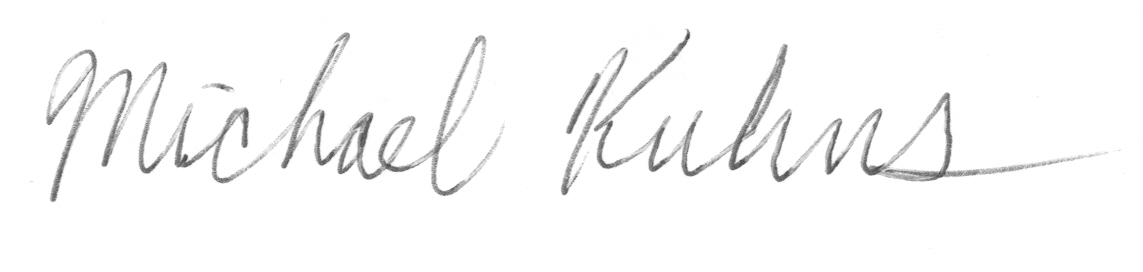 Michael Kuhns